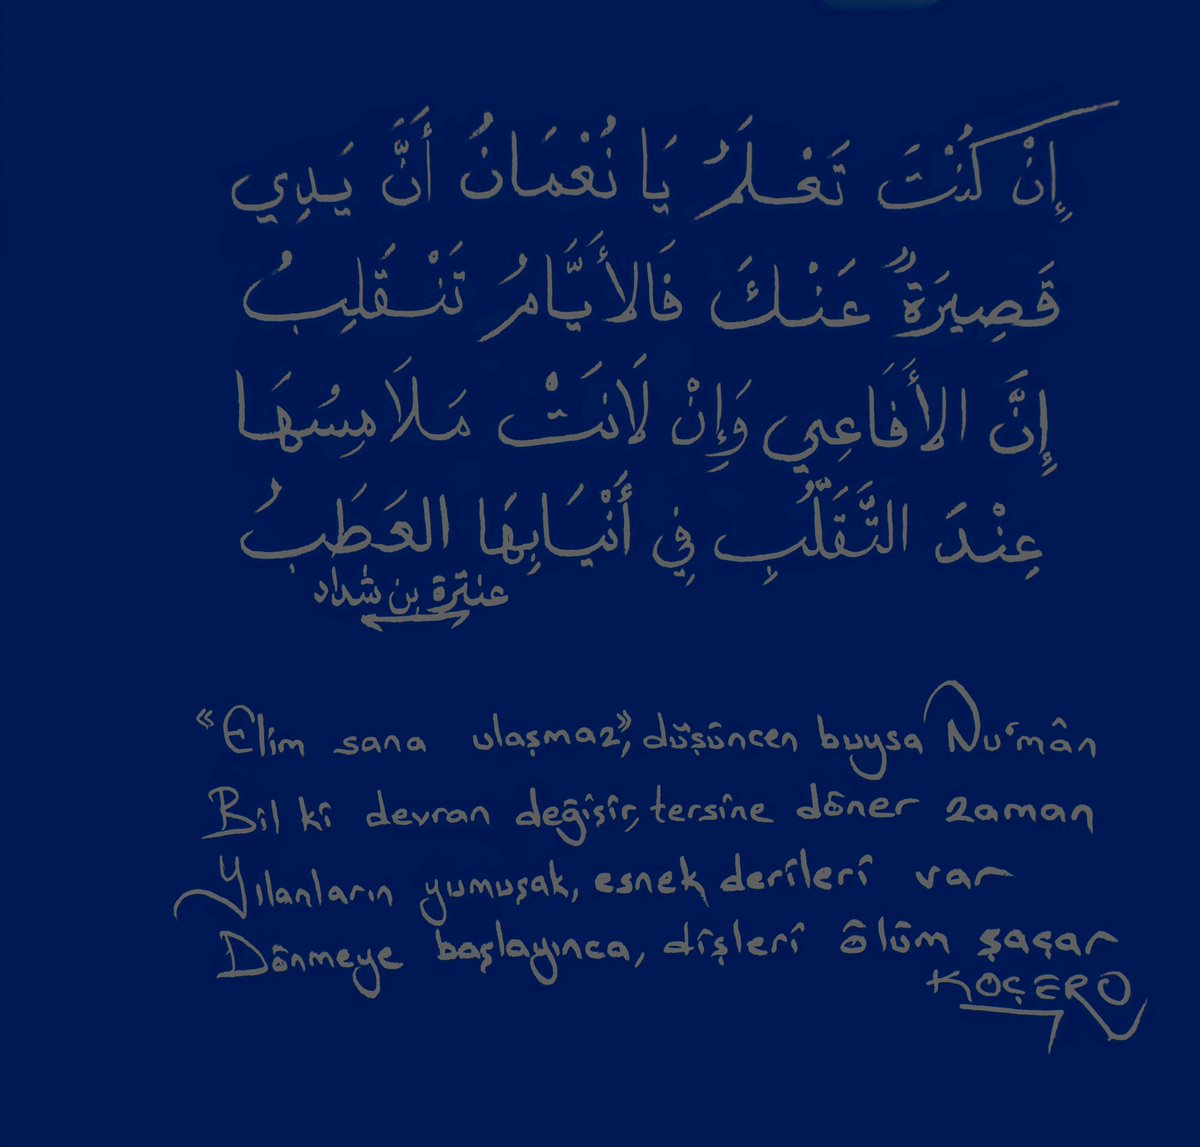 إِنْ كُنْتَ تَعْلَمُ يَا نُعْمَانُ أَنَّ يَدِي
قَصِيرَةٌ عَنْكَ فَالأَيَّامُ تَنْقَلِبُ
إِنَّ الأَفَاعِي وَإِنْ لَانَتْ مَلَامِسُهَا
عِنْدَ التَّقَلُّبِ فِي أَنْيَابِهَا العَطَبُ
عنترة بن شداد
“Elim sana ulaşmaz”, düşüncen buysa Nu‘mân
Bil ki devran değişir, tersine döner zaman
Yılanların yumuşak, esnek derileri var
Dönmeye başlayınca, dişleri ölüm saçar
KOÇERO